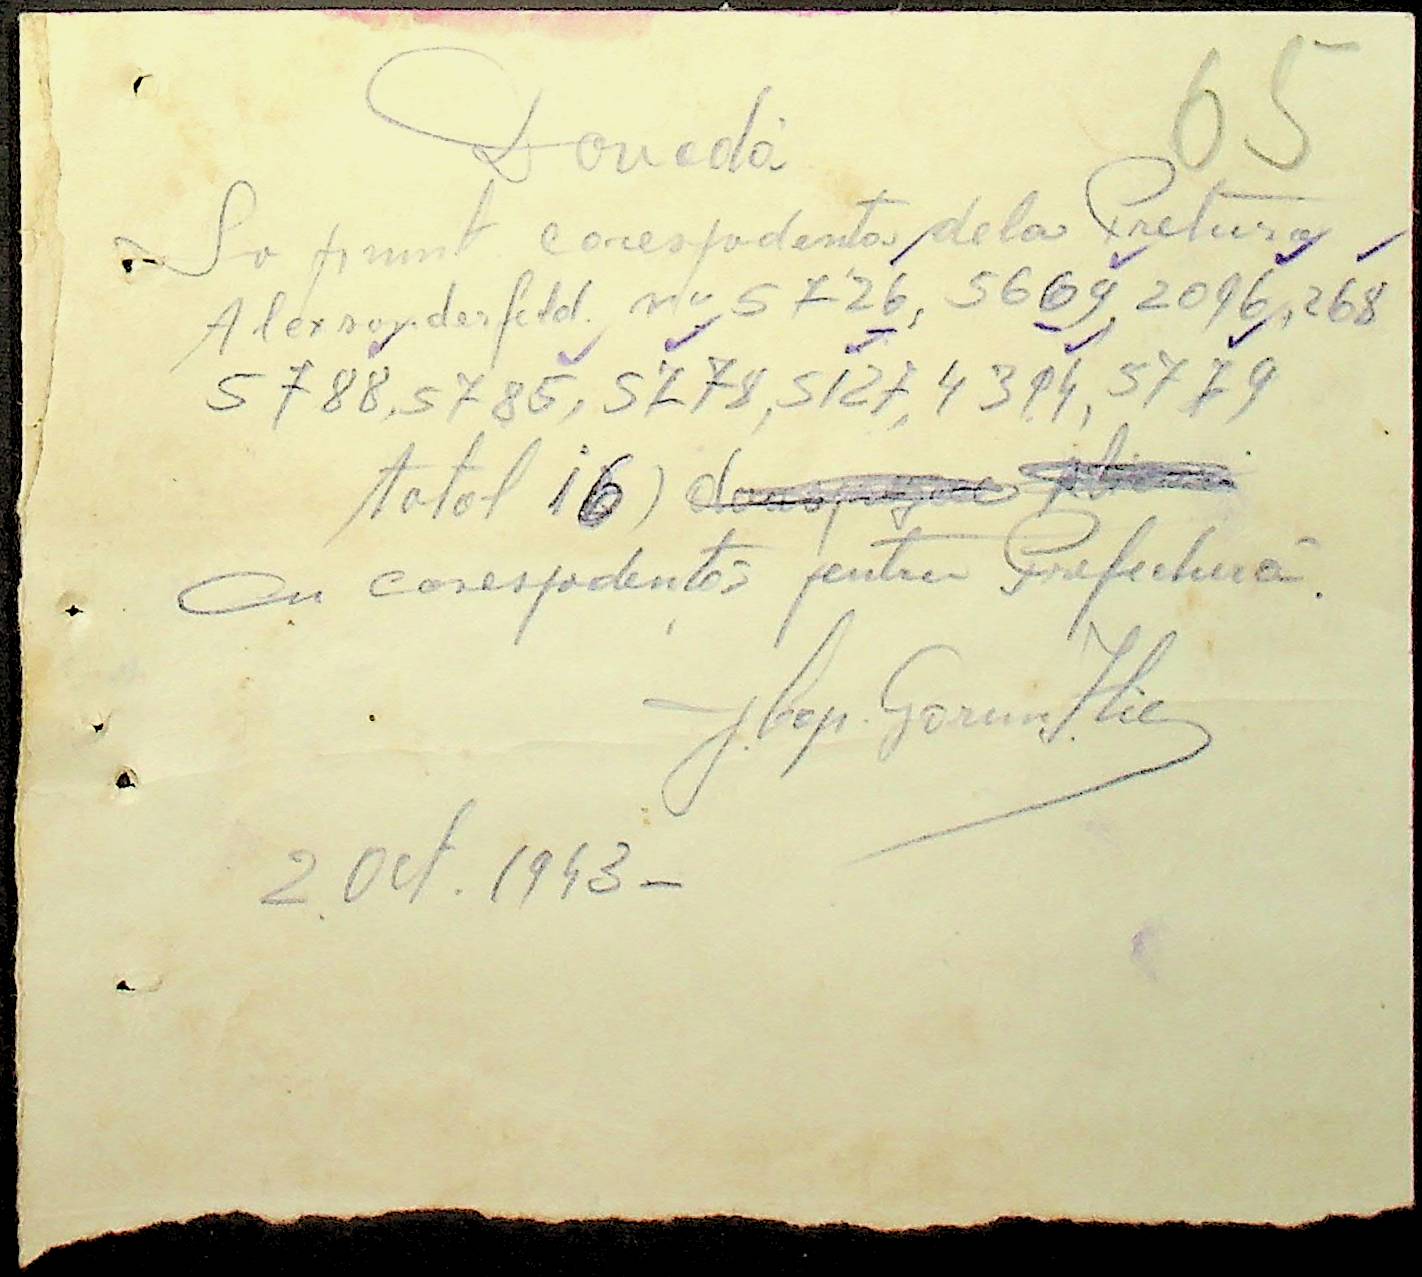 65
Dovedă
So primit corespodenta dela Pretura
Alexsanderfeld. nu 5726, 5669, 2096, 268
5788, 5785, 5778, 5127, 4394, 5779
total 16)
Cu corespodentă pentru Prefectură.
Cap. Gorun Ilie
2 Oct. 1943-